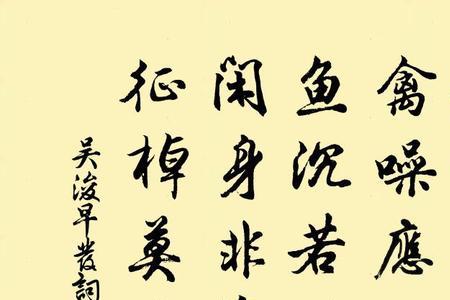 禽噪應
鱼沉若
闲身非
征棹莫
吴浚早發詞